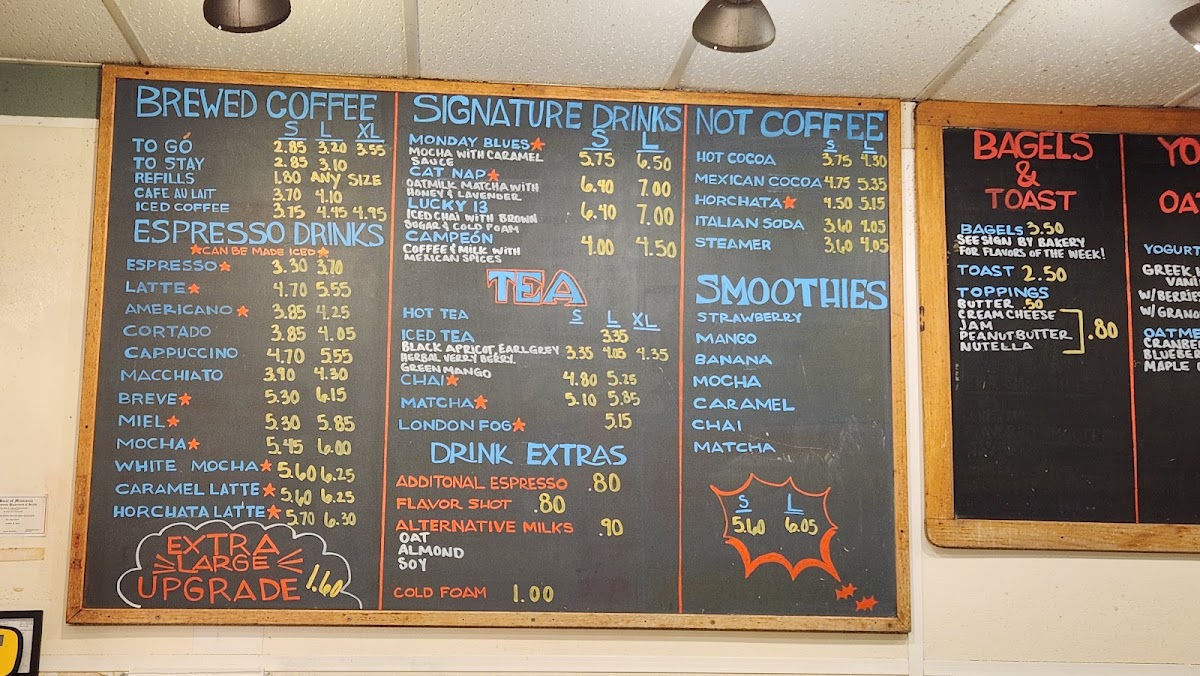 BREWED COFFEE
S L XL
TO GO 2.85 3.20 3.55
TO STAY 2.85 3.10
REFILLS 1.80 ANY SIZE
CAFE AU LAIT 3.70 4.10
ICED COFFEE 3.75 4.45 4.95
ESPRESSO DRINKS
★CAN BE MADE ICED★
ESPRESSO★ 3.30 3.70
LATTE★ 4.70 5.55
AMERICANO★ 3.85 4.25
CORTADO 3.85 4.05
CAPPUCCINO 4.70 5.55
MACCHIATO 3.90 4.30
BREVE★ 5.30 6.15
MIEL★ 5.30 5.85
MOCHA★ 5.45 6.00
WHITE MOCHA★ 5.60 6.25
CARAMEL LATTE★ 5.60 6.25
HORCHATA LATTE★ 5.70 6.30
EXTRA
LARGE
UPGRADE 1.60
SIGNATURE DRINKS
S L
MONDAY BLUES★
MOCHA WITH CARAMEL 5.75 6.50
SAUCE
CAT NAP★
OATMILK MATCHA WITH 6.40 7.00
HONEY & LAVENDER
LUCKY 13
ICED CHAI WITH BROWN 6.40 7.00
SUGAR & COLD FOAM
CAMPEÓN
COFFEE & MILK WITH 4.00 4.50
MEXICAN SPICES
TEA
S L XL
HOT TEA 3.35
ICED TEA
BLACK APRICOT EARLGREY 3.35 4.05 4.35
HERBAL VERRY BERRY
GREEN MANGO
CHAI★ 4.80 5.25
MATCHA★ 5.10 5.85
LONDON FOG★ 5.15
DRINK EXTRAS
ADDITONAL ESPRESSO .80
FLAVOR SHOT .80
ALTERNATIVE MILKS .90
OAT
ALMOND
SOY
COLD FOAM 1.00
NOT COFFEE
S L
HOT COCOA 3.75 4.30
MEXICAN COCOA 4.75 5.35
HORCHATA★ 4.50 5.15
ITALIAN SODA 3.60 4.05
STEAMER 3.60 4.05
SMOOTHIES
STRAWBERRY
MANGO
BANANA
MOCHA
CARAMEL
CHAI
MATCHA
S L
5.60 6.05
BAGELS
&
TOAST
BAGELS 3.50
SEE SIGN BY BAKERY
FOR FLAVORS OF THE WEEK!
TOAST 2.50
TOPPINGS
BUTTER .50
CREAM CHEESE
JAM
PEANUT BUTTER .80
NUTELLA
YO
OA
YOGURT
GREEK
VANI
W/BERRIES
W/GRANO
OATME
CRANBE
BLUEBER
MAPLE